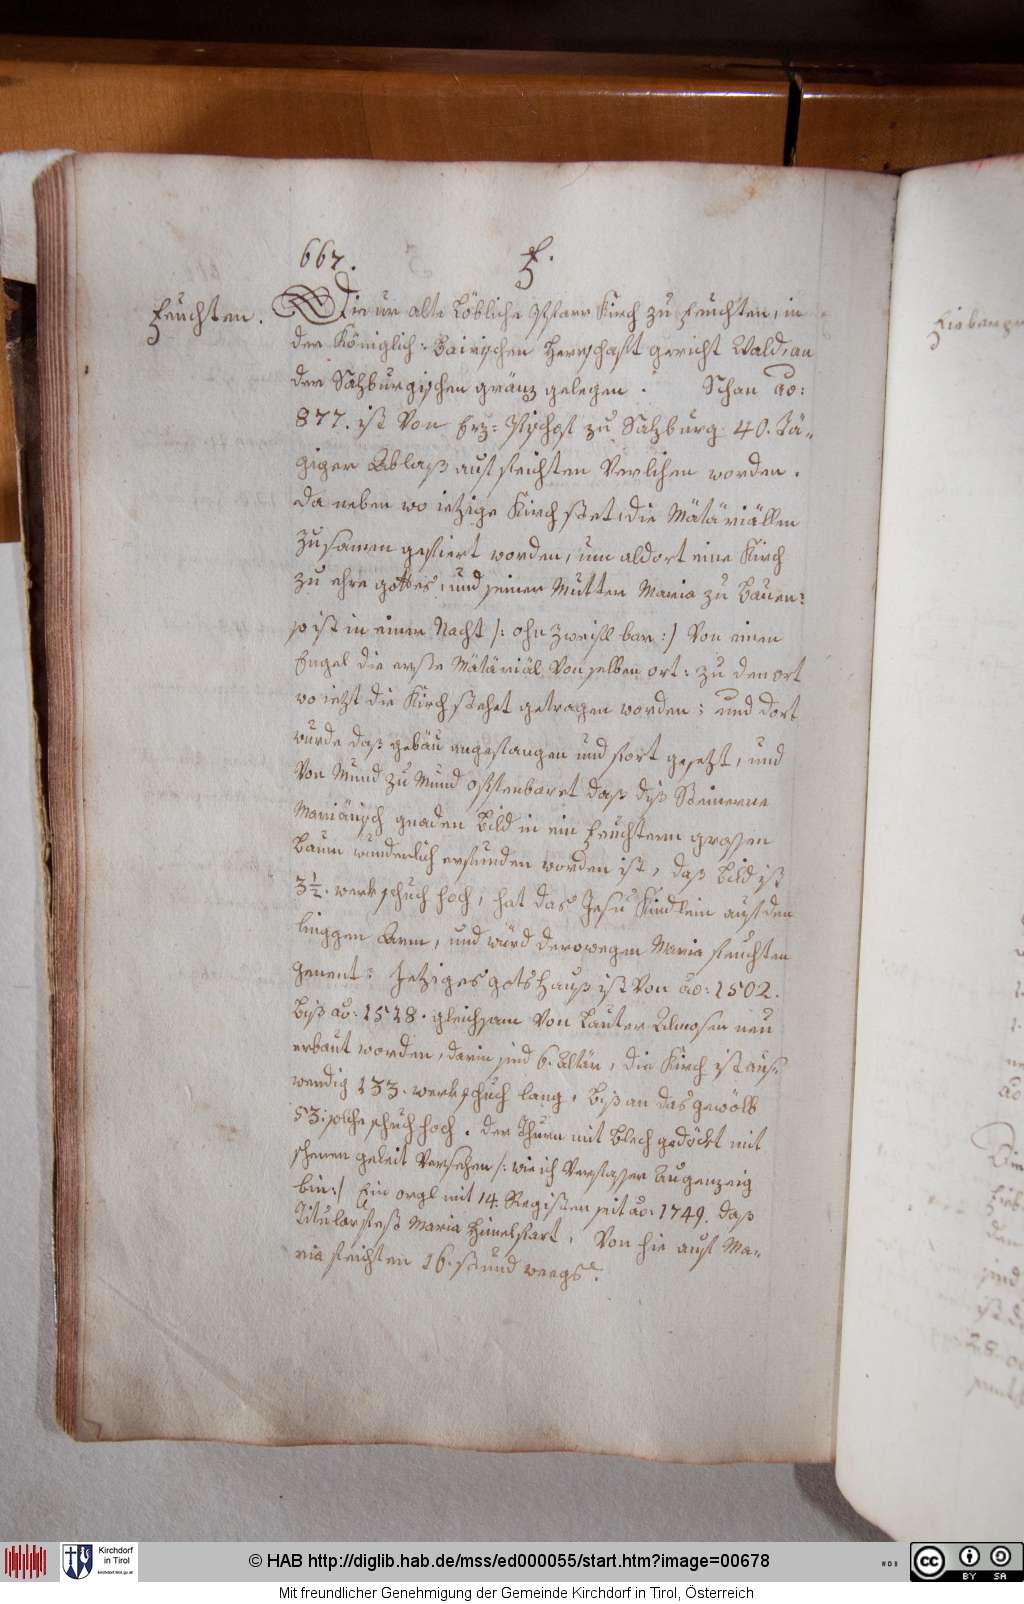 667. F.
Feuchten.
Die ur alte Löbliche Pfarr Kirch zu Feuchten, in
der Königlich: Bairischen Herrschaft gericht Wald, an
der Salzburgischen gränz gelegen. Schon Ao:
877. ist Von Erz=Pischof zu Salzburg 40. Tä„
giger Ablaß auf feichten Verlihen worden.
Da neben wo ietzige Kirch stet, die Mätäriällen
zusamen gefiert worden, um aldort eine Kirch
zu ehre gottes, und seiner Mutter Maria zu Bauen:
so ist in einer Nacht /: ohn zweifl bar :/ Von einen
Engel die erste Mätäriäl Von selben ort: zu den ort
wo ietzt die Kirch stehet getragen worden: und dort
wurde daß gebäu angefangen und fort gesetzt, und
Von Mund zu Mund offenbaret daß diß Steinerne
Mariänisch gnaden Bild in ein Feuchtern grossen
Baum wunderlich erfunden worden ist, daß Bild ist
3½. werkschuch hoch, hat das Jesu Kindlein auf den
linggen Arm, und würd derowegen Maria feuchten
genent: Jetziges gotshauß ist Von ao: 1502.
Biß ao: 1528. gleichsam Von Lauter Almosen neu
erbaut worden, darin sind 6. Altär, die Kirch ist aus„
wendig 133. werkschuch lang, Biß an das gewölb
53: solche schuch hoch. der Thurn mit Blech gedöckt mit
schenen geleit Versehen /: wie ich Verfasser Augenzeig
bin :/ Ein orgl mit 14. Registern seit ao: 1749. daß
Titularfest Maria Himelfart, Von hie auf Ma„
ria feichten 16. stund weegs.
© HAB http://diglib.hab.de/mss/ed000055/start.htm?image=00678
Kirchdorf
in Tirol
kirchdorf.tirol.gv.at
WDB
cc BY SA
Mit freundlicher Genehmigung der Gemeinde Kirchdorf in Tirol, Österreich